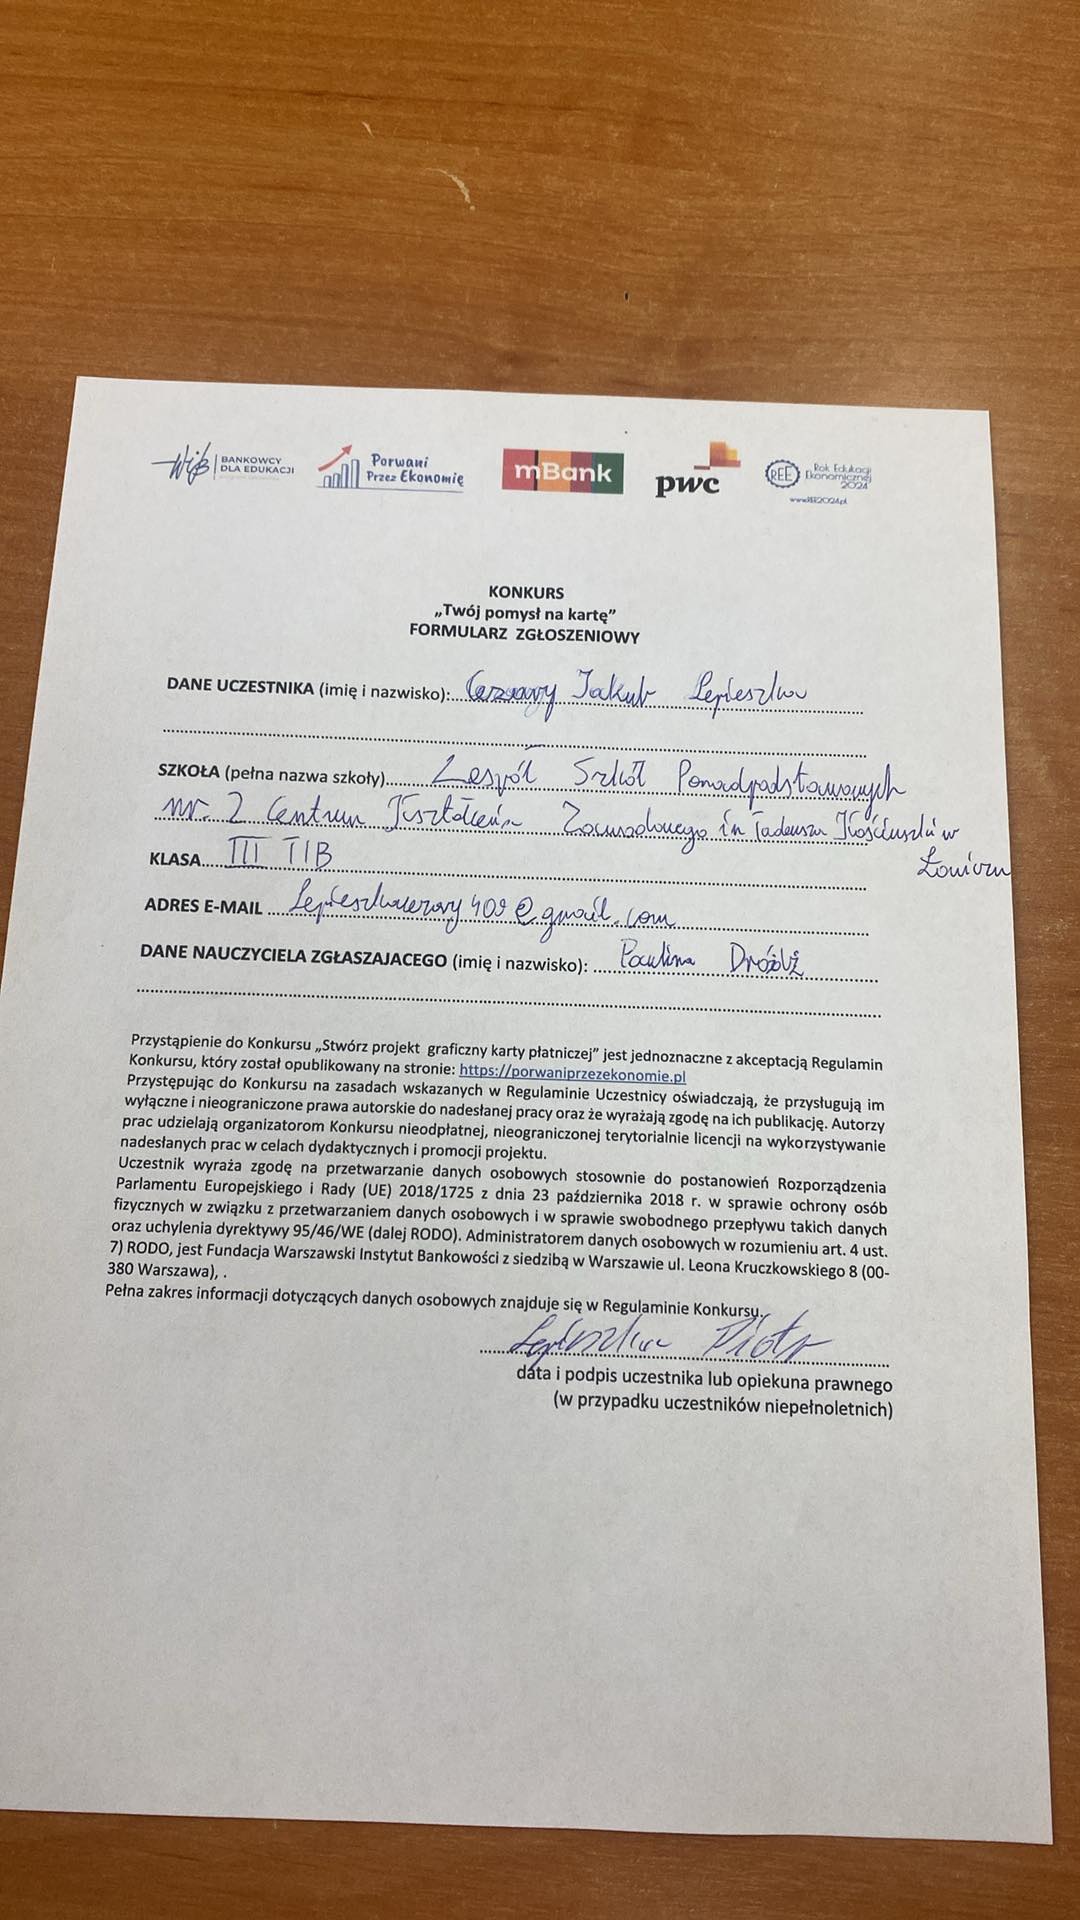 WiB BANKOWCY
DLA EDUKACJI
Porwani
Przez Ekonomię
mBank
pwc
REE Rok Edukacji
Ekonomicznej
2024
www.REE2024.pl
KONKURS
„Twój pomysł na kartę”
FORMULARZ ZGŁOSZENIOWY
DANE UCZESTNIKA (imię i nazwisko): Cezary Jakub Lepieszka
SZKOŁA (pełna nazwa szkoły) Zespół Szkół Ponadpodstawowych
nr. 2 Centrum Kształcenia Zawodowego im Tadeusza Kościuszki w
Łowiczu
KLASA III TIB
ADRES E-MAIL Lepieszkacezary409@gmail.com
DANE NAUCZYCIELA ZGŁASZAJACEGO (imię i nazwisko): Paulina Dróżdż
Przystąpienie do Konkursu „Stwórz projekt graficzny karty płatniczej” jest jednoznaczne z akceptacją Regulamin
Konkursu, który został opublikowany na stronie: https://porwaniprzezekonomie.pl
Przystępując do Konkursu na zasadach wskazanych w Regulaminie Uczestnicy oświadczają, że przysługują im
wyłączne i nieograniczone prawa autorskie do nadesłanej pracy oraz że wyrażają zgodę na ich publikację. Autorzy
prac udzielają organizatorom Konkursu nieodpłatnej, nieograniczonej terytorialnie licencji na wykorzystywanie
nadesłanych prac w celach dydaktycznych i promocji projektu.
Uczestnik wyraża zgodę na przetwarzanie danych osobowych stosownie do postanowień Rozporządzenia
Parlamentu Europejskiego i Rady (UE) 2018/1725 z dnia 23 października 2018 r. w sprawie ochrony osób
fizycznych w związku z przetwarzaniem danych osobowych i w sprawie swobodnego przepływu takich danych
oraz uchylenia dyrektywy 95/46/WE (dalej RODO). Administratorem danych osobowych w rozumieniu art. 4 ust.
7) RODO, jest Fundacja Warszawski Instytut Bankowości z siedzibą w Warszawie ul. Leona Kruczkowskiego 8 (00-
380 Warszawa), .
Pełna zakres informacji dotyczących danych osobowych znajduje się w Regulaminie Konkursu.
Lepieszka Piotr
data i podpis uczestnika lub opiekuna prawnego
(w przypadku uczestników niepełnoletnich)